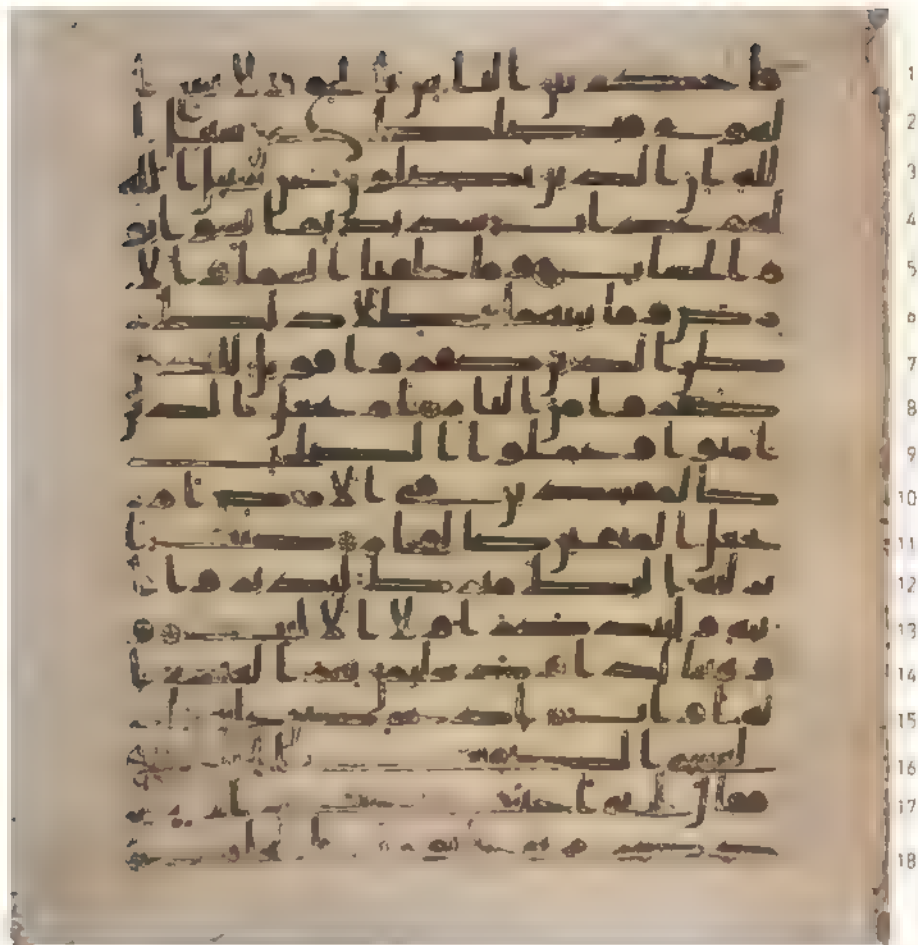 فاحكم بين الناس بالحق ولا تتبع ا
لهوى فيضلك عن سبيل ا
لله ان الذين يضلون عن سبيل الله
لهم عذاب شديد بما نسوا يو
م الحساب وما خلقنا السما والا
رض وما بينهما بطلا ذلك
ظن الذين كفروا فويل للذين
كفروا من النار ام نجعل الذين
امنوا وعملوا الصلحت
كالمفسدين في الارض ام
نجعل المتقين كالفجار كتب ا
نزلنه اليك مبرك ليدبروا ا
يته وليتذكر اولوا الالبب و
وهبنا لداود سليمن نعم العبد ا
نه اواب اذ عرض عليه با
لعشي الصفنت الجياد
فقال اني احببت حب ا
لخير عن ذكر ربي حتى